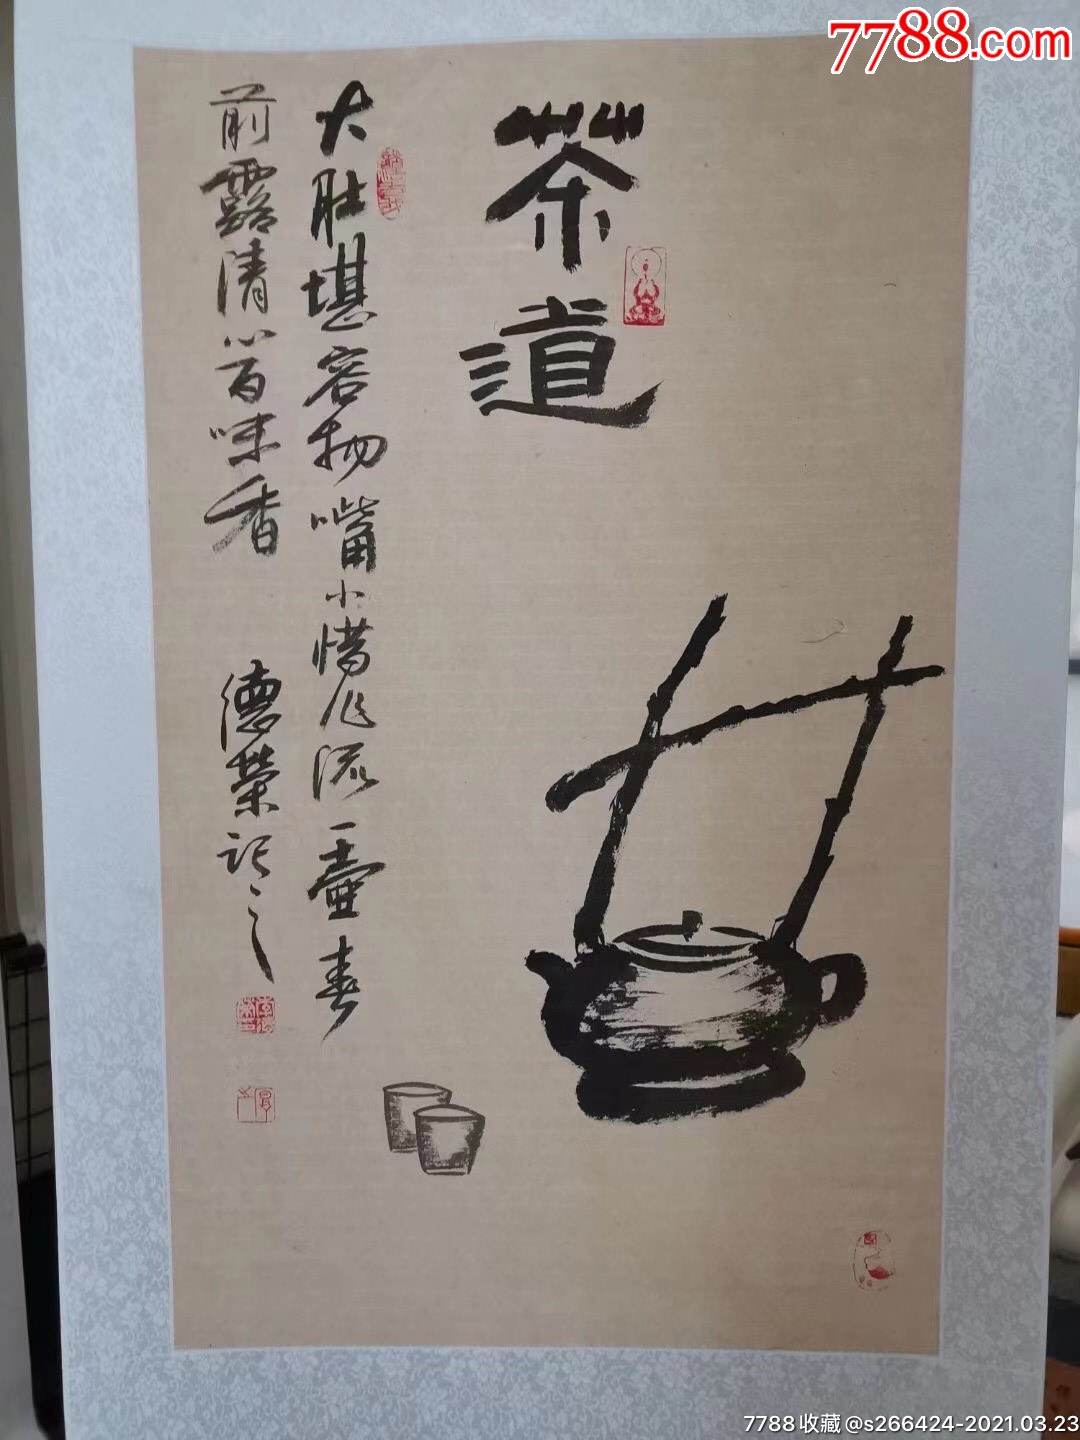 7788.com
茶道
大肚堪容物嘴小惜飞流一壶春
前露清心百味香
德荣记之
7788收藏@s266424-2021.03.23